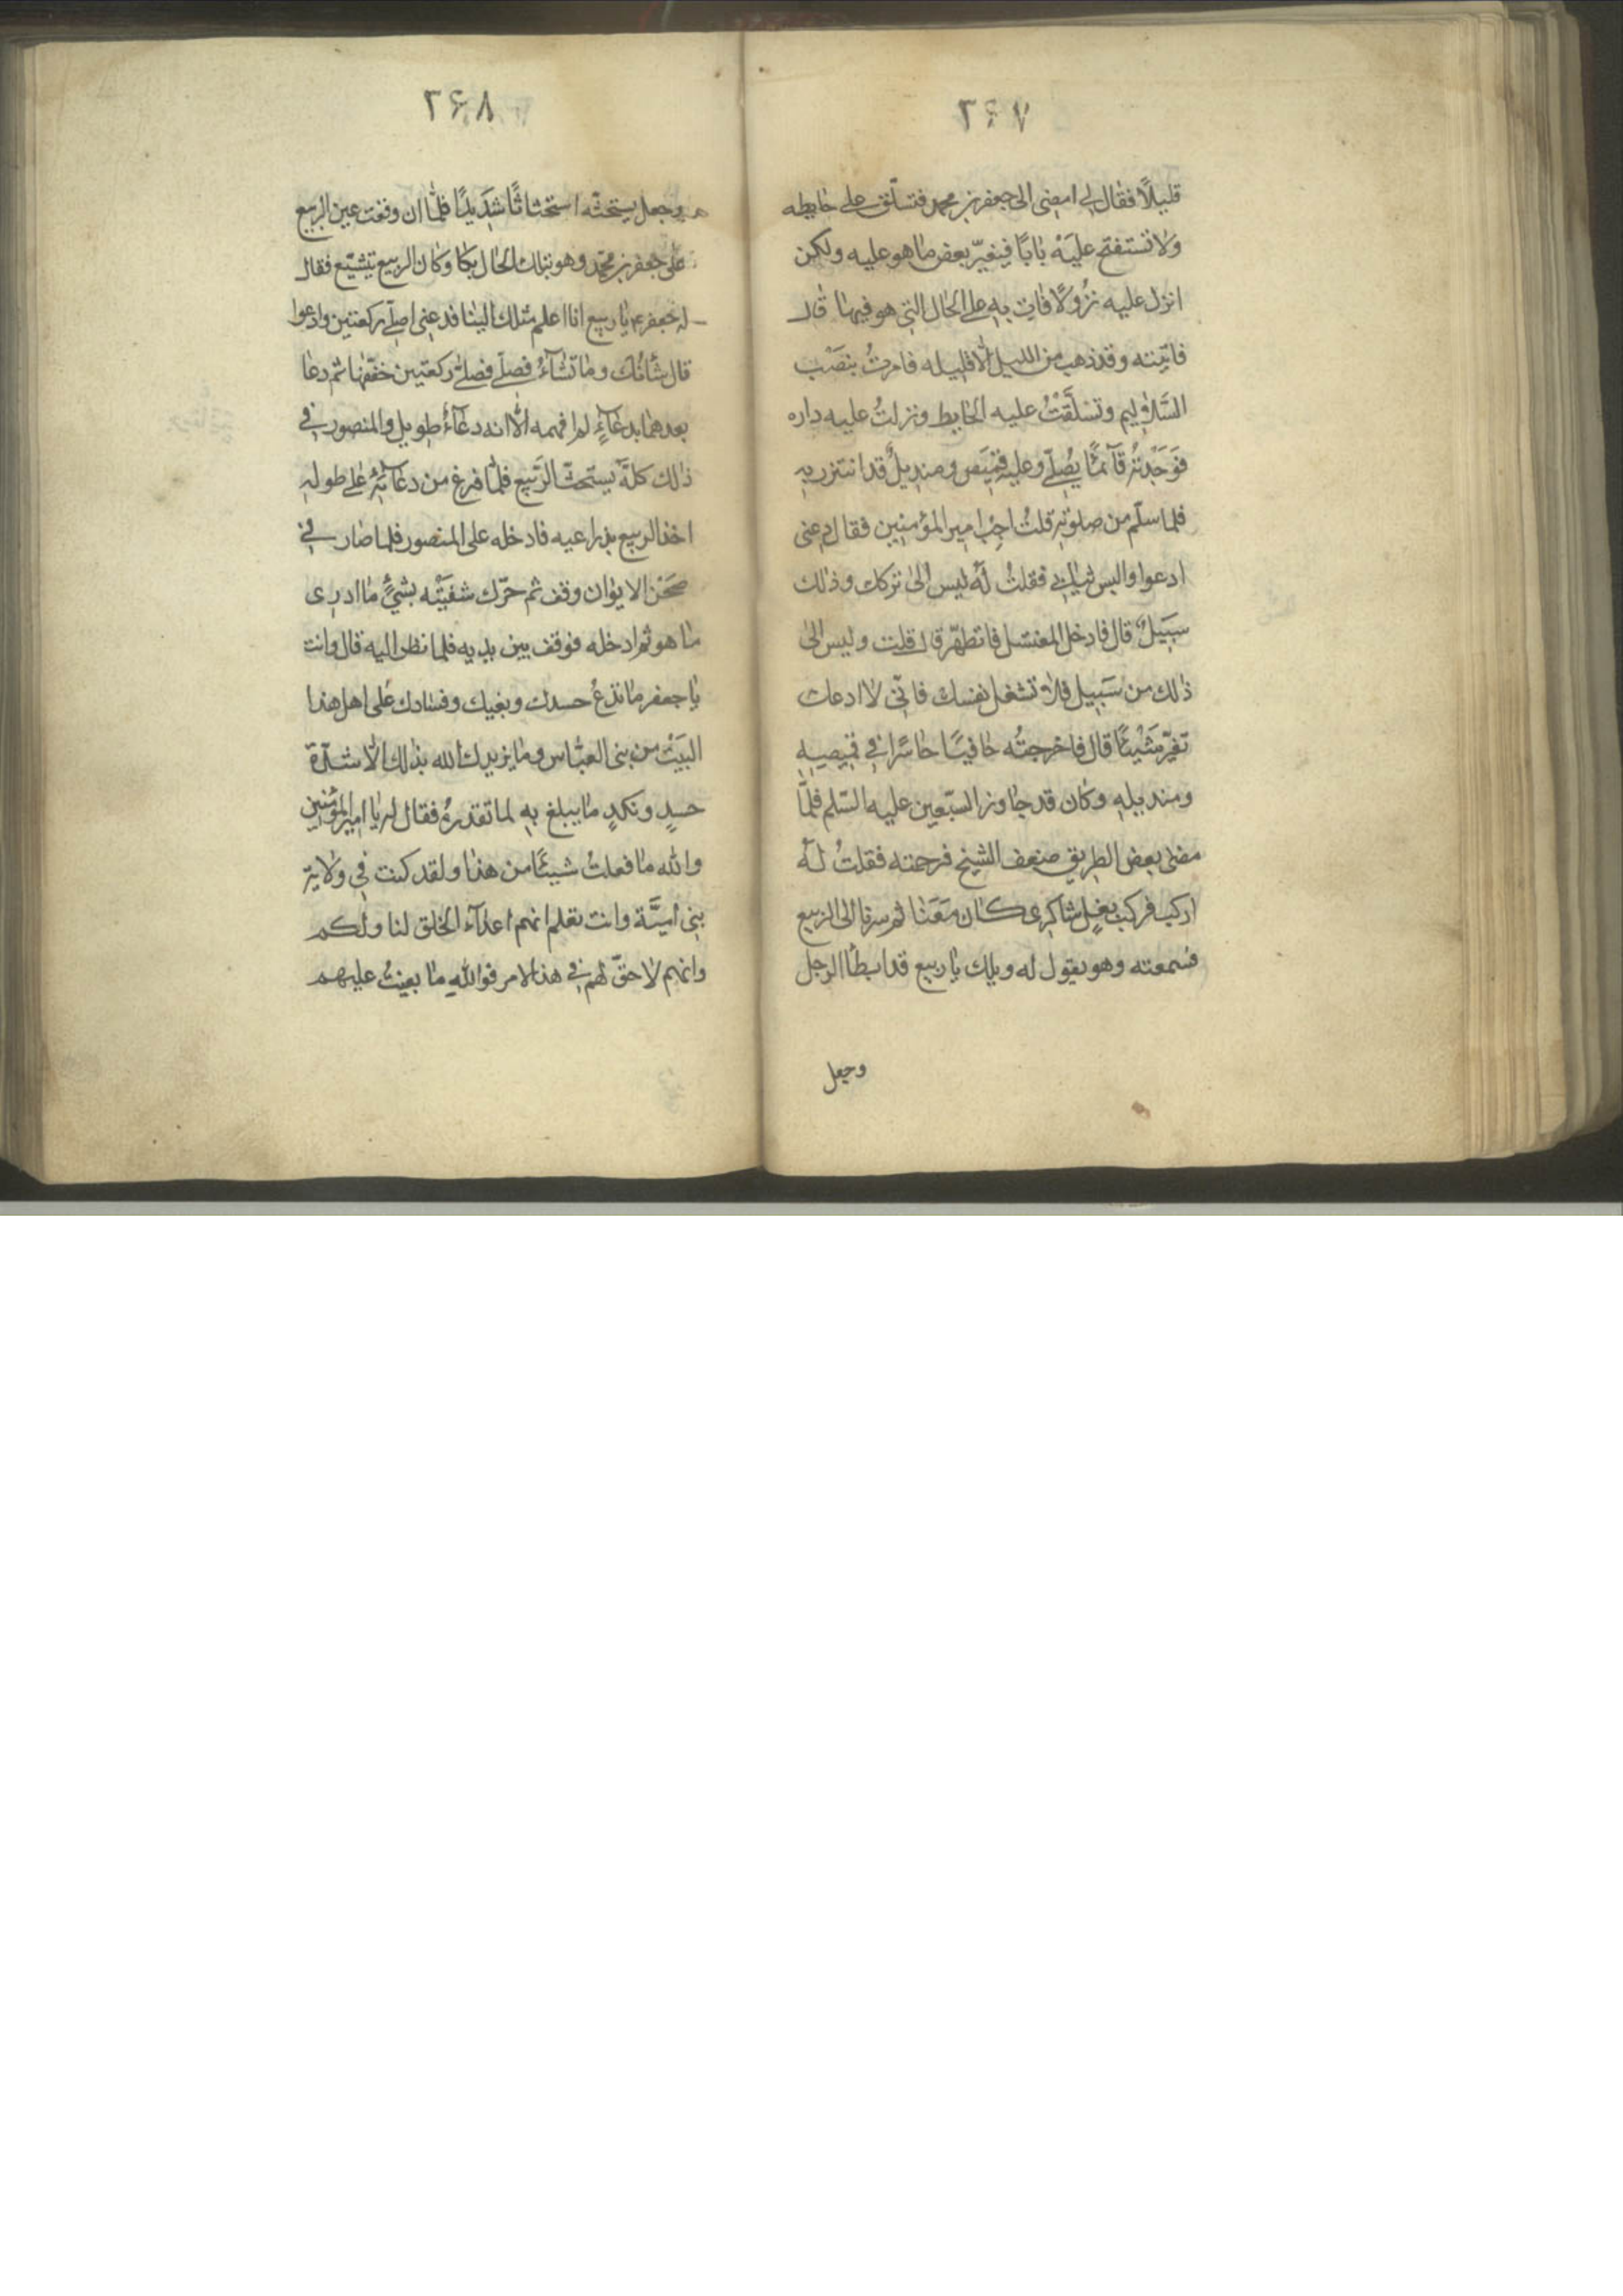 ٢۶٧
قليلًا فقال لى امضى الى جعفر بن محمد فتسلّق على حايطه
ولا تستفتح عليه بابًا فيغيّر بعض ما هو عليه ولكن
انزل عليه نزولًا فات به على الحال التى هو فيها قال
فاتيته وقد ذهب من الليل الّا قليله فامرتُ بنصْب
السّلاليم وتسلّقتُ عليه الحايط ونزلتُ عليه داره
فوجدته قآئمًا يُصلّى وعليه قميص ومنديلٌ قد ائتزر به
فلما سلّم من صلوته قلتُ اجب امير المؤمنين فقال دعنى
ادعوا والبس ثيابى فقلتُ له ليس الى تركك وذلك
سبيلٌ قال فادخل المغتسل فاتطهّر قال قلت وليس الى
ذلك من سبيل فلا تشغل نفسك فانّى لا ادعك
تغيّر شيئًا قال فاخرجتُه حافيًا حاسرًا فى قميصه
ومنديله وكان قد جاوز السّبعين عليه السّلم فلمّا
مضى بعض الطريق ضعف الشيخ فرحمته فقلتُ له
اركب فركب بغل شاكرى كان معنا ثم سرنا الى الربيع
فسمعته وهو يقول له ويلك يا ربيع قد ابطأ الرجل
وجعل
٢۶٨
وجعل يستحثّه استحثاثًا شديدًا فلمّا ان وقعت عين الربيع
على جعفر بن محمّد وهو بتلك الحال بكا وكان الربيع يتشيّع فقال
له جعفر ع يا ربيع انا اعلم ميلك الينا فدعنى اصلّى ركعتين وادعوا
قال شأنُك وما تشآءُ فصلّى فصلّى ركعتين خفّفها ثم دعا
بعدهما بدعآءٍ لم افهمه الّا انه دعآءٌ طويل والمنصور فى
ذلك كلّه يستحثّ الرّبيع فلمّا فرغ من دعآئه على طوله
اخذ الربيع بذراعيه فادخله على المنصور فلما صار فى
صحْن الايوان وقف ثم حرّك شفتيْه بشيءٍ ما ادرى
ما هو ثم ادخله فوقف بين يديه فلما نظر اليه قال وانت
يا جعفر ما تدعُ حسدك وبغيك وفسادك على اهل هذا
البيْت من بنى العبّاس وما يزيدك الله بذلك الّا شدّة
حسدٍ ونكدٍ ما يبلغ به لما تقدرهُ فقال له يا امير المؤمنين
والله ما فعلتُ شيئًا من هذا ولقد كنت فى ولاية
بنى اميّة وانت تعلم انهم اعدآء الخلق لنا ولكم
وانهم لا حقّ لهم فى هذا الامر فوالله ما بغيتُ عليهم